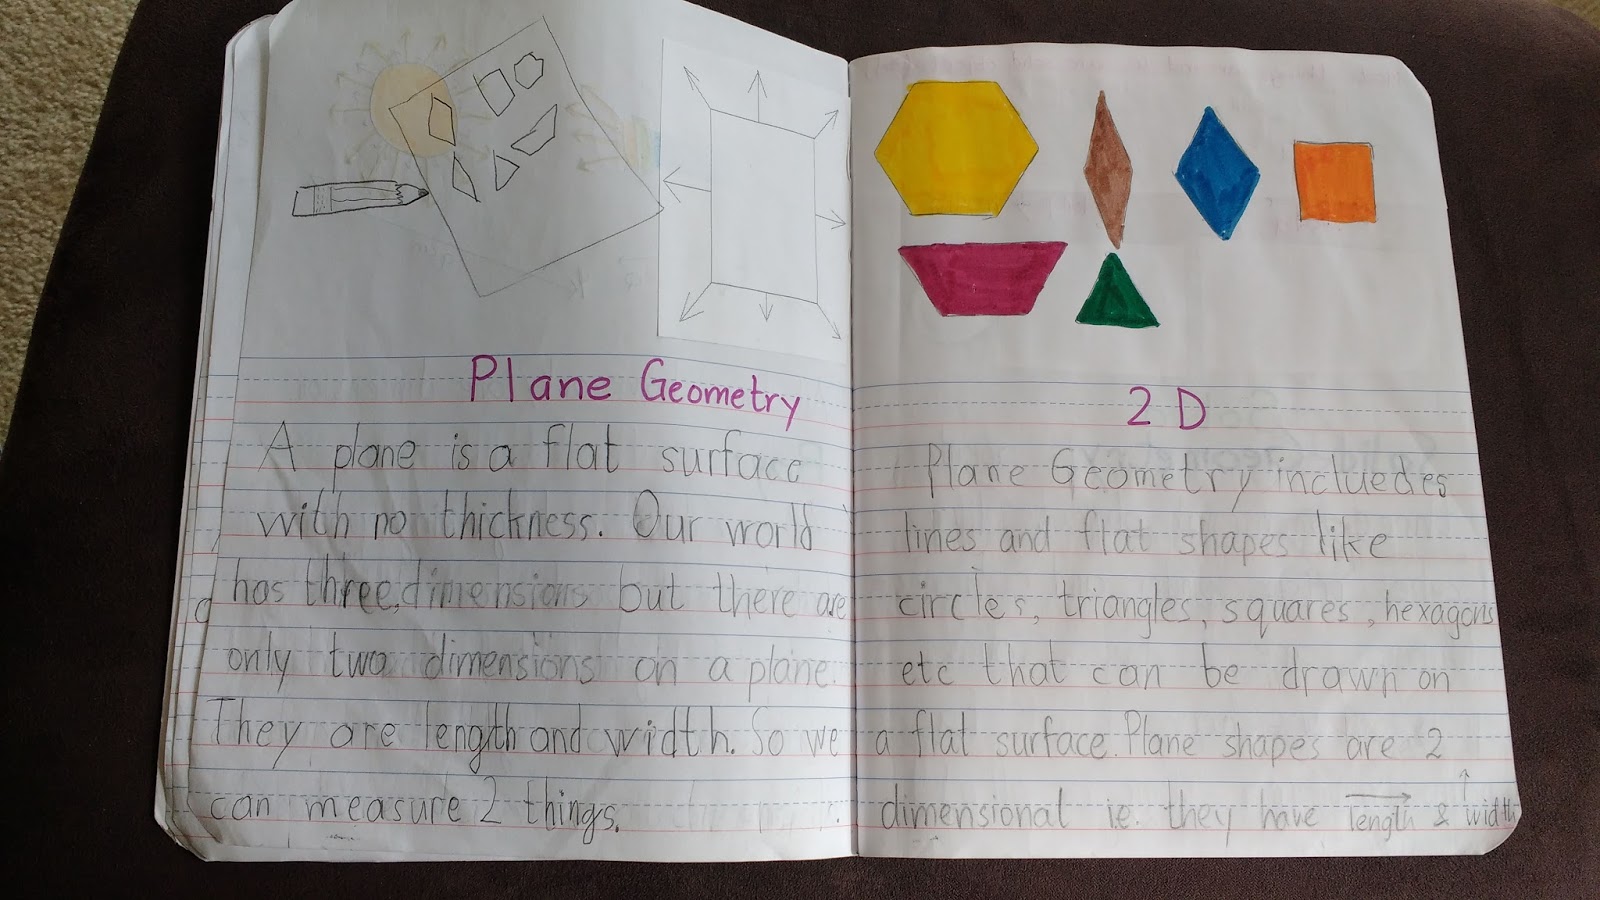 Plane Geometry
A plane is a flat surface
with no thickness. Our world
has three dimensions but there are
only two dimensions on a plane.
They are length and width. So we
can measure 2 things.
2 D
Plane Geometry incluedes
lines and flat shapes like
circles, triangles, squares, hexagons
etc that can be drawn on
a flat surface. Plane shapes are 2
dimensional i.e. they have length & width